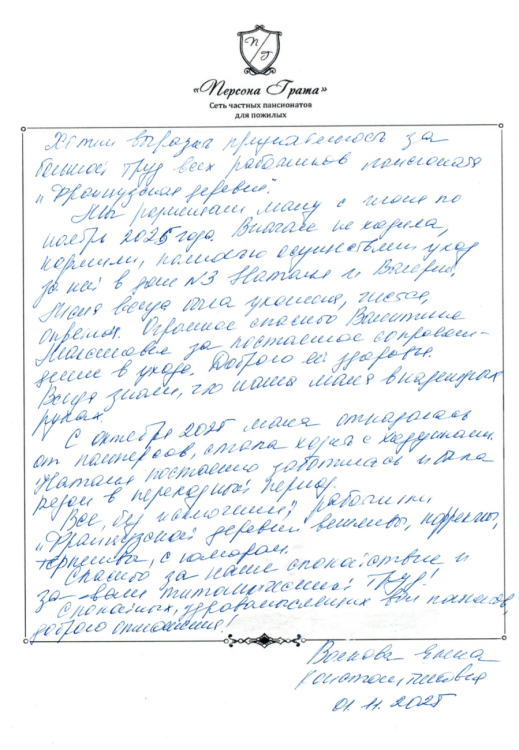 П Г
«Персона Грата»
Сеть частных пансионатов
для пожилых
Хотим выразить признательность за
большой труд всех работников пансионата
"Французская деревня".
Мы размещали маму с июня по
ноябрь 2025 года. Вначале не ходила,
кормили, полностью осуществляли уход
за ней в доме №3 Наталья и Валерий.
Мама всегда была ухожена, чистая,
опрятная. Огромное спасибо Валентине
Максимовне за постоянное сопровож-
дение в уходе. Доброго ей здоровья.
Всегда знали, что наша мама в надежных
руках.
С октября 2025 мама отказалась
от памперсов, стала ходить с ходунками.
Наталья постоянно заботилась и была
рядом в переходный период.
Все, без исключений, работники
"Французской деревни" вежливы, корректны,
терпеливы, с юмором.
Спасибо за наше спокойствие и
за ваш титанический труд!
Спокойных, здравомыслящих вам пациентов,
доброго отношения!
Волкова Елена
Константиновна
01.11.2025